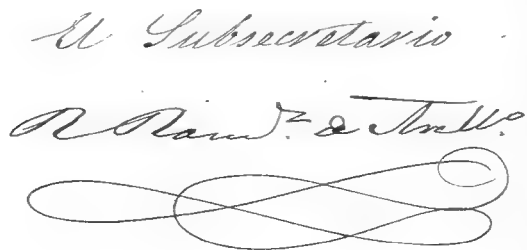 El Subsecretario
R Ramz. de Arello